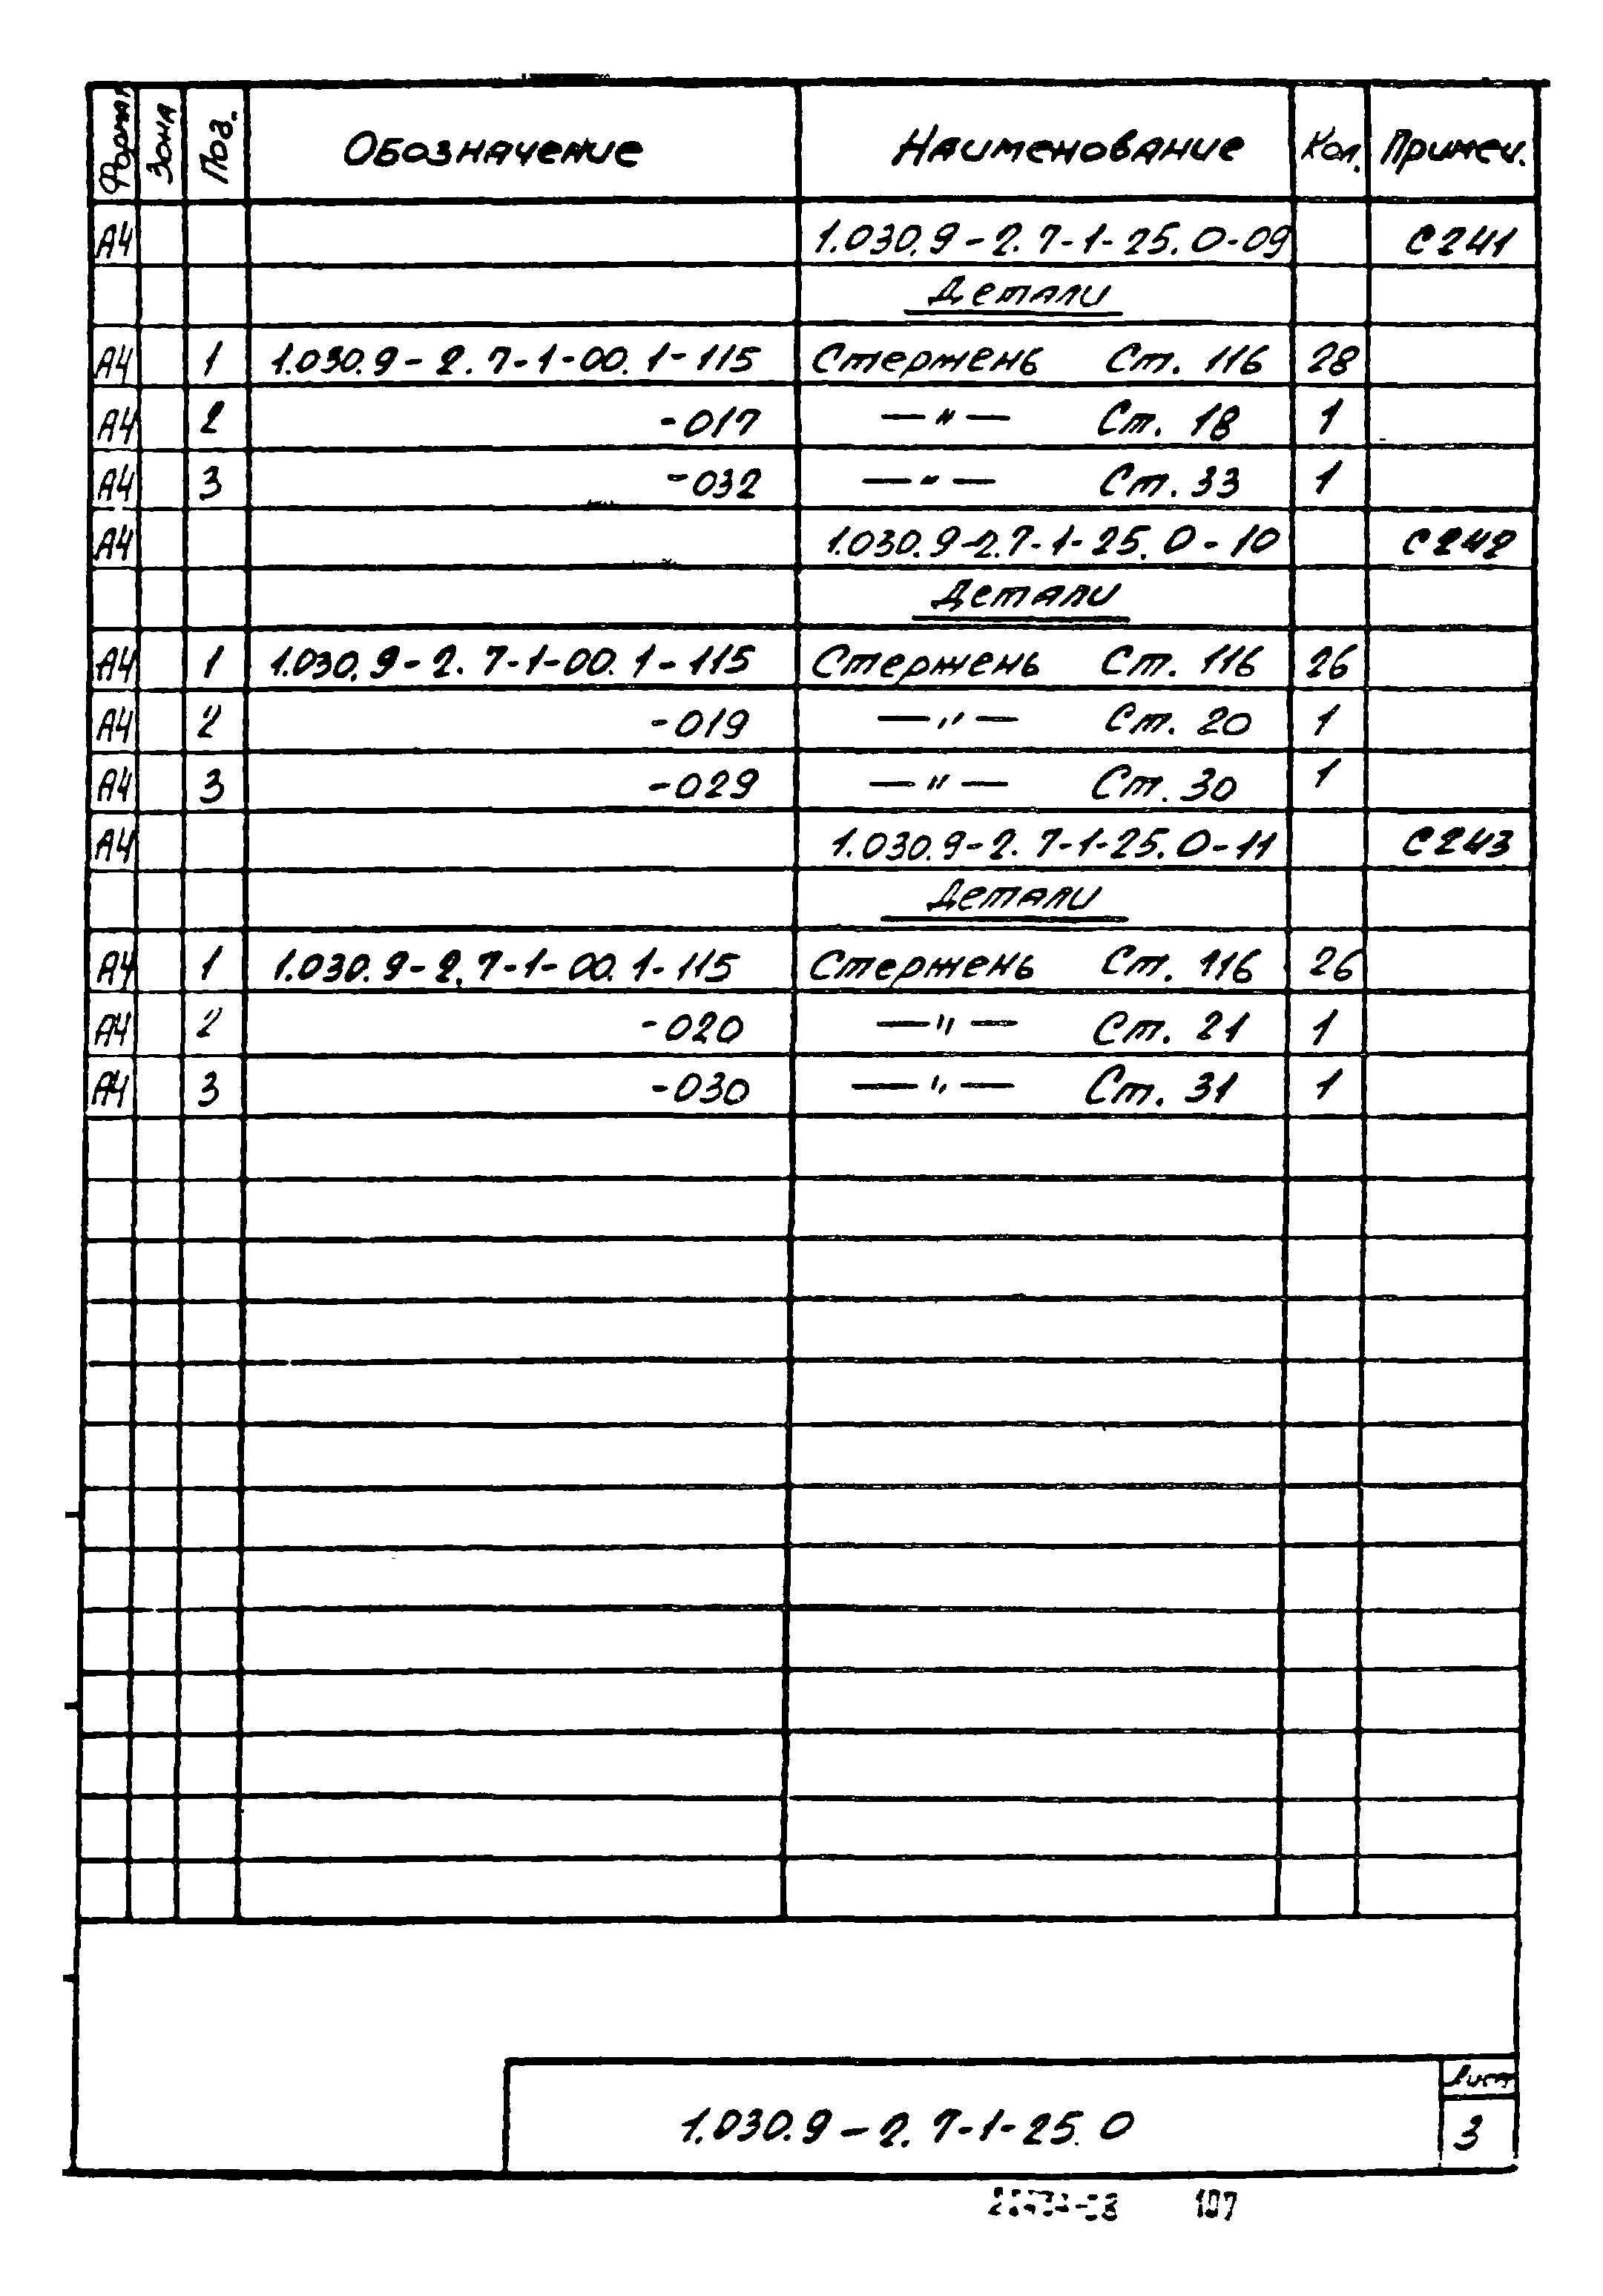 Формат Зона Поз. Обозначение Наименование Кол. Примеч.
А4 1.030.9-2.7-1-25.0-09 С241
Детали
А4 1 1.030.9-2.7-1-00.1-115 Стержень Ст. 116 28
А4 2 -017 —"— Ст. 18 1
А4 3 -032 —"— Ст. 33 1
А4 1.030.9-2.7-1-25.0-10 С242
Детали
А4 1 1.030.9-2.7-1-00.1-115 Стержень Ст. 116 26
А4 2 -019 —"— Ст. 20 1
А4 3 -029 —"— Ст. 30 1
А4 1.030.9-2.7-1-25.0-11 С243
Детали
А4 1 1.030.9-2.7-1-00.1-115 Стержень Ст. 116 26
А4 2 -020 —"— Ст. 21 1
А4 3 -030 —"— Ст. 31 1
Лист
1.030.9-2.7-1-25.0 3
107